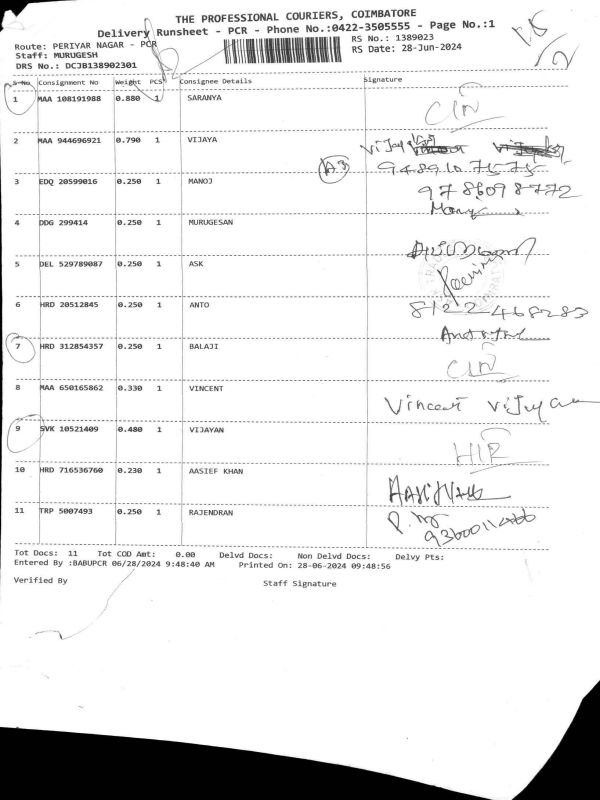 THE PROFESSIONAL COURIERS, COIMBATORE
Delivery Runsheet - PCR - Phone No.:0422-3505555 - Page No.:1
Route: PERIYAR NAGAR - PCR
RS No.: 1389023
Staff: MURUGESH
RS Date: 28-Jun-2024
DRS No.: DCJB138902301
S No. Consignment No Weight PCS Consignee Details Signature
1 MAA 108191988 0.880 1 SARANYA
2 MAA 944696921 0.790 1 VIJAYA
3 EDQ 20599016 0.250 1 MANOJ 9786098772
4 DDG 299414 0.250 1 MURUGESAN
5 DEL 529789087 0.250 1 ASK
6 HRD 20512845 0.250 1 ANTO 8122468283
7 HRD 312854357 0.250 1 BALAJI
8 MAA 650165862 0.330 1 VINCENT Vincent
9 SVK 10521409 0.480 1 VIJAYAN
10 HRD 716536760 0.230 1 AASIEF KHAN
11 TRP 5007493 0.250 1 RAJENDRAN
Tot Docs: 11 Tot COD Amt: 0.00 Delvd Docs: Non Delvd Docs: Delvy Pts:
Entered By :BABUPCR 06/28/2024 9:48:40 AM Printed On: 28-06-2024 09:48:56
Verified By Staff Signature